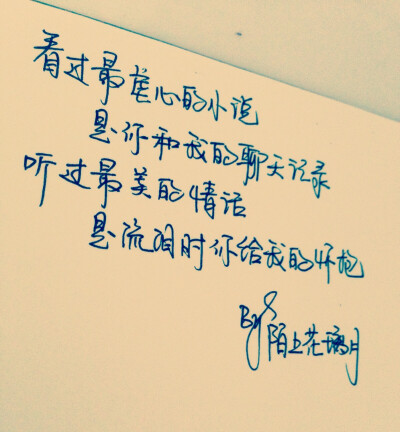 看过最虐心的小说
是你和我的聊天记录
听过最美的情话
是流泪时你给我的怀抱
By 陌上花璃月